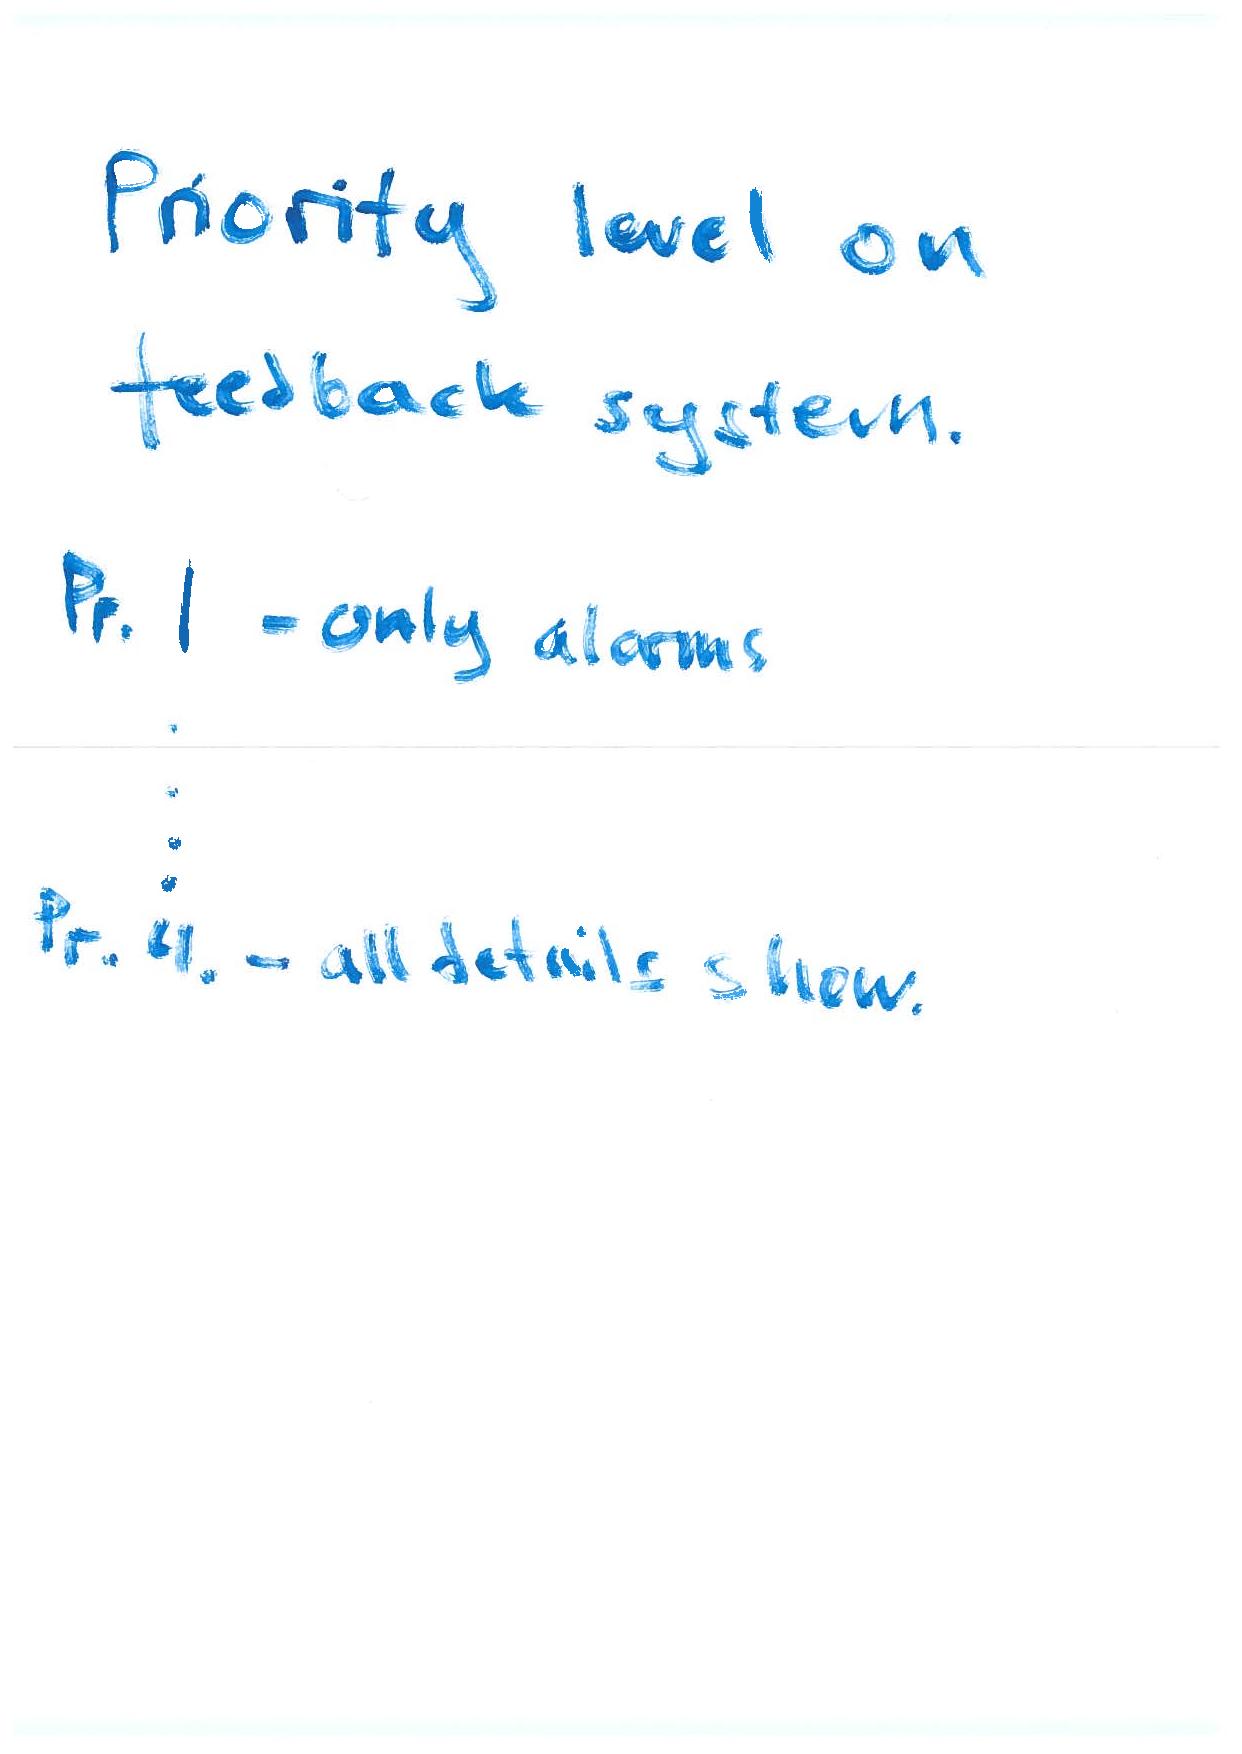 Priority level on
feedback system.
Pr. 1 - only alarms
Pr. 4. - all details show.